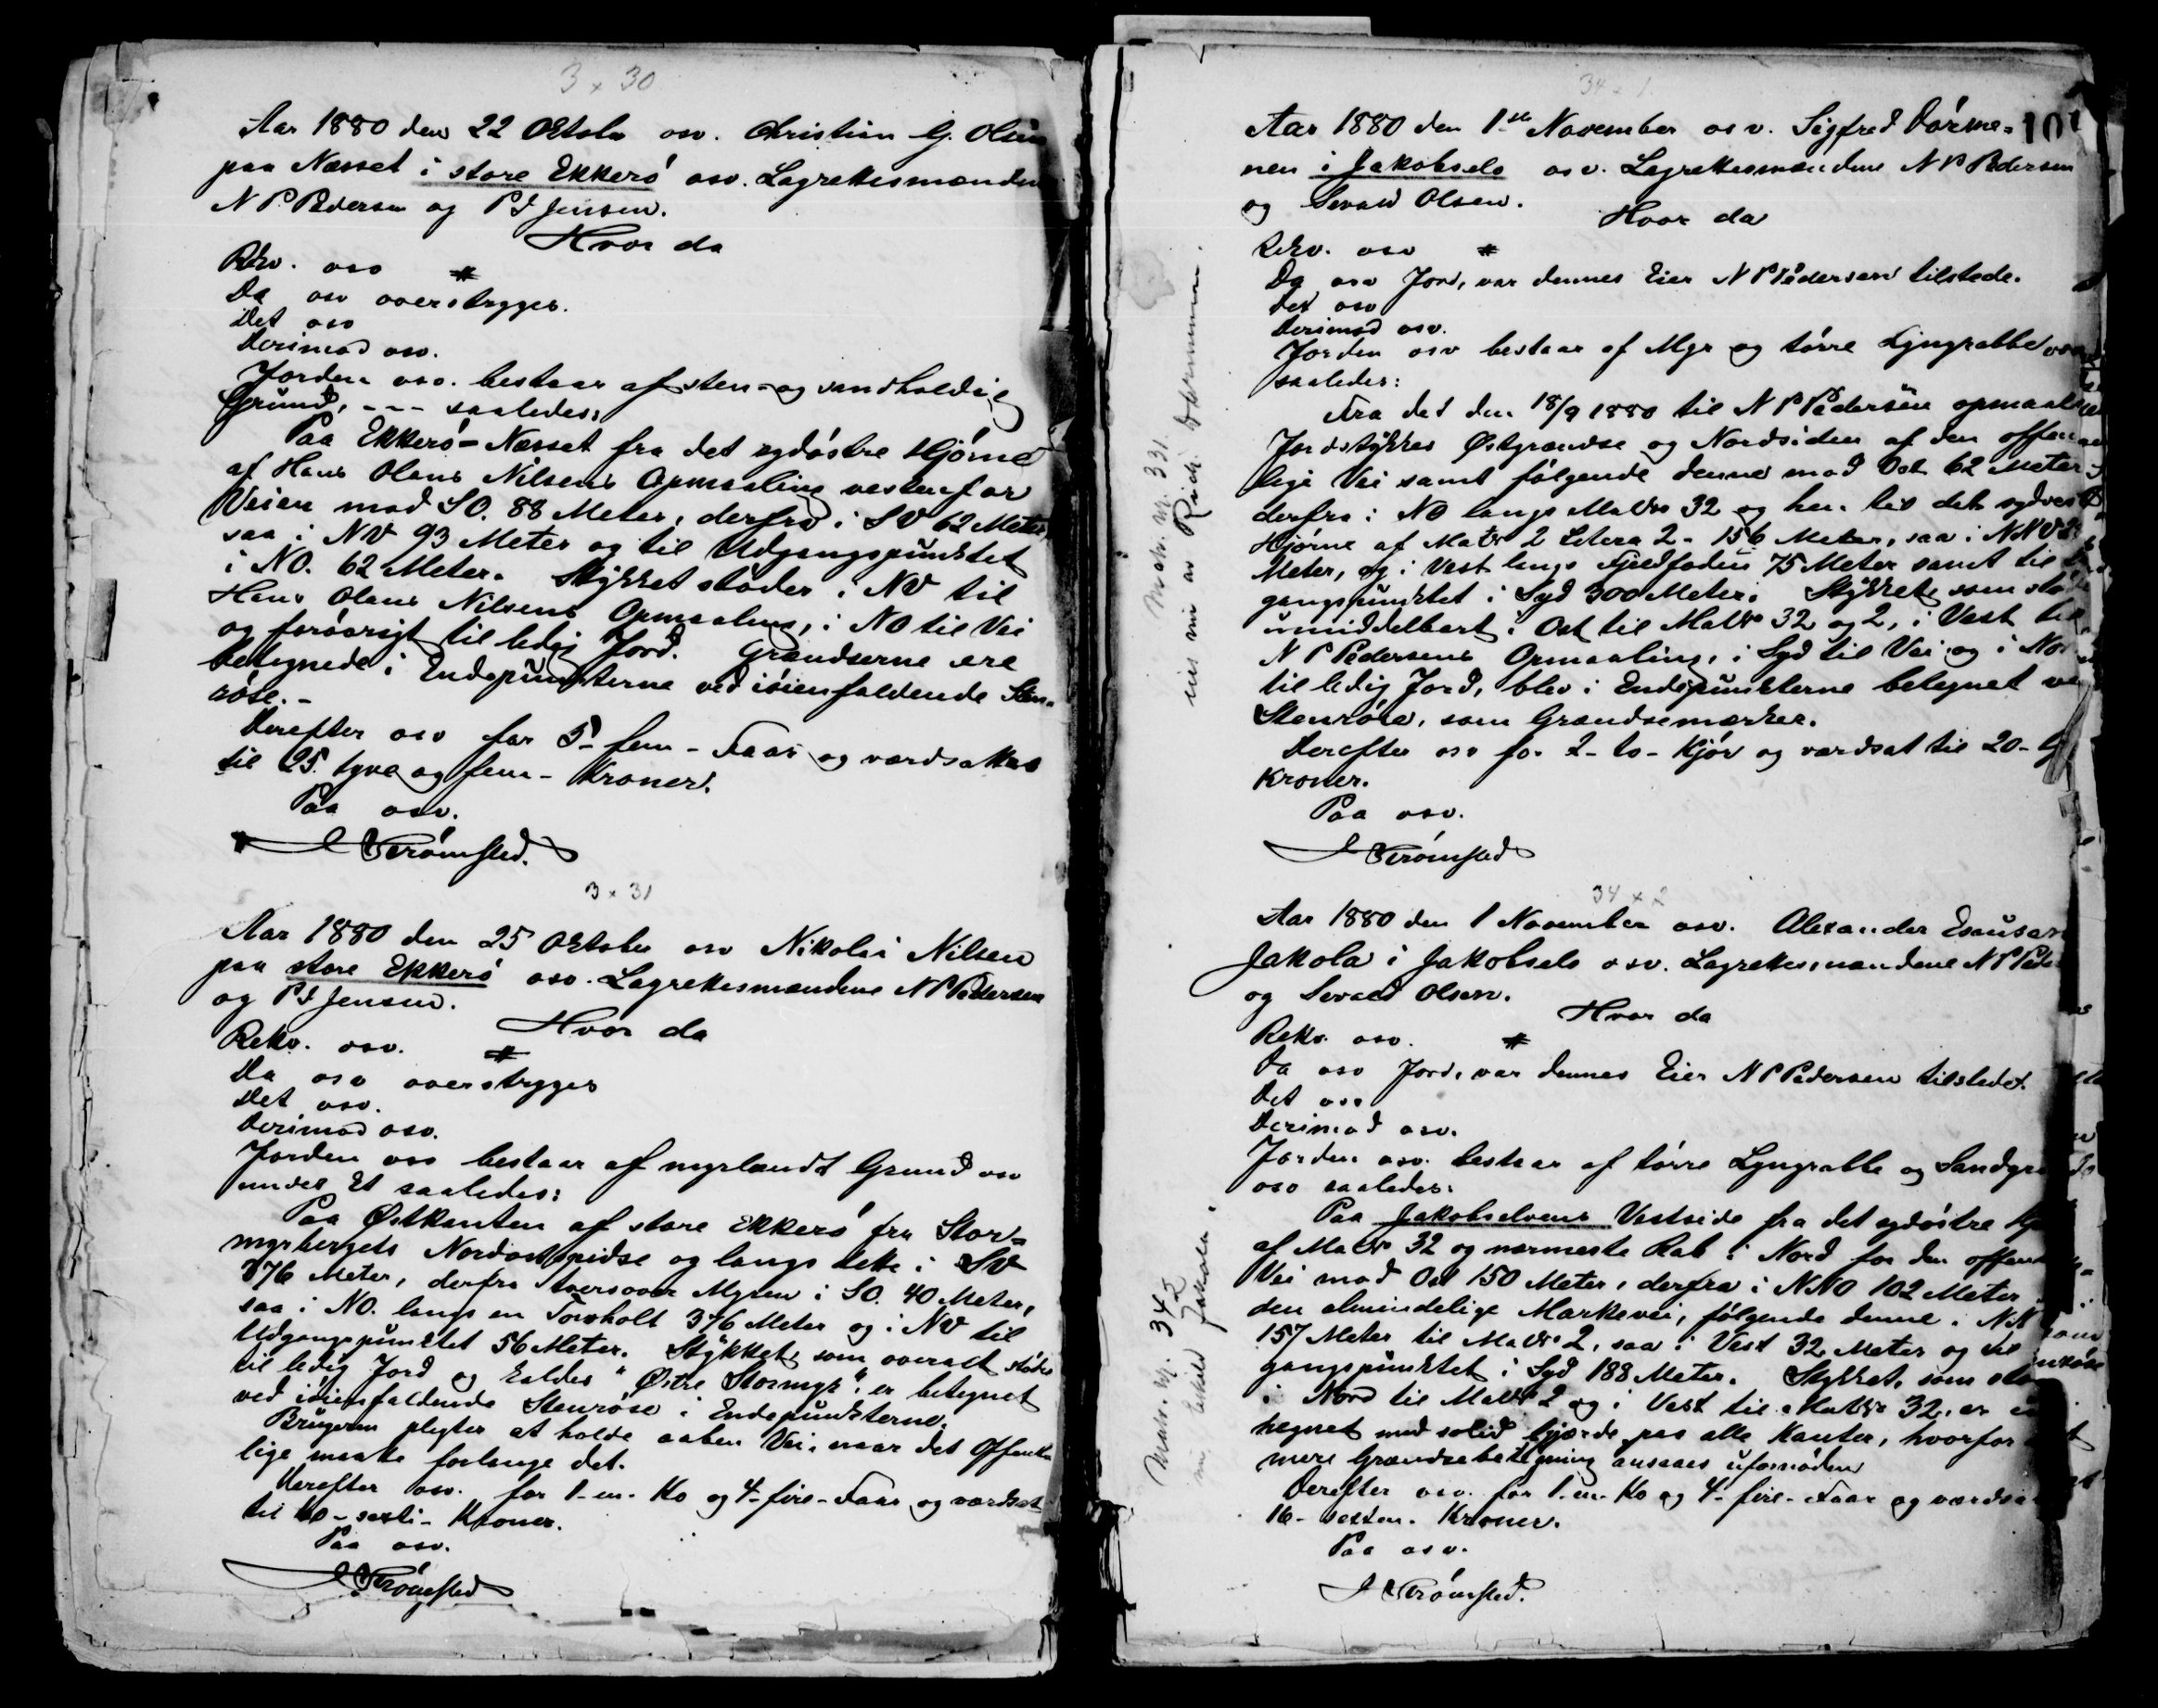 3 x 30
Aar 1880 den 22 Oktober osv. Christian G. Olsen
paa Næsset i store Ekkerö osv. Lagrettesmændene
N P. Pedersen og P I Jensen.
Hvor da
Rekv. osv #
Da osv overstryges.
Det osv
Derimod osv.
Jorden osv. bestaar af sten- og sandholdig
Grund, --- saaledes:
Paa Ekkerö-Næsset fra det sydöstre Hjörne
af Hans Olaus Nilsens Opmaaling vestenfor
Veien mod SO. 88 Meter, derfra i SV 62 Meter,
saa i NV 93 Meter og til Udgangspunktet
i NO. 62 Meter. Stykket stöder i NV til
Hans Olaus Nilsens Opmaaling, i NO til Vei
og forövrigt til ledig Jord. Grændserne ere
betegnede i Endepunkterne ved iöienfaldende Sten-
röse.-
Derefter osv for 5- fem - Faar og værdsattes
til 25. tyve og fem- Kroner.
Paa osv.
J Strömsted.
3 x 31
Aar 1880 den 25 Oktober osv Nikolai Nilsen
paa store Ekkerö osv. Lagrettesmændene N P Pedersen
og P I Jensen.
Hvor da
Rekv. osv. #
Da osv overstryges
Det osv.
Derimod osv.
Jorden osv bestaar af myrlændt Grund osv
under Et saaledes:
Paa Östkanten af store Ekkerö fra Stor-
myrbergets Nordostspidse og langs dette i SV
376 Meter, derfra tversover Myren i SO. 40 Meter,
saa i NO. langs en Torvholt 376 Meter og i NV til
Udgangspunktet 56 Meter. Stykket, som overalt stöder
til ledig Jord og kaldes "Östre Stormyr", er betegnet
ved iöienfaldende Stenröse i Endepunkterne.
Brugeren plegter at holde aaben Vei, naar det Offent-
lige maatte forlange det.
Derefter osv. for 1- en- Ko og 4- fire- Faar og værdsat
til 60 - sexti- Kroner.
Paa osv.
J Strömsted
34 x 1
Aar 1880 den 1ste November osv. Sigfred Dórme- 101
nen i Jakobselv osv. Lagrettesmændene N P Pedersen
og Sevald Olsen.
Hvor da
Rekv. osv #
Da osv Jord, var dennes Eier N P Pedersen tilstede.
Det osv
Derimod osv.
Jorden osv bestaar af Myr og törre Lyngrabbe osv
saaledes:
Fra det den 18/9 1880 til N P Pedersen opmaalte
Jordstykkes Östgrændse og Nordsiden af den offent
lige Vei samt fölgende denne mod Ost 62 Meter,
derfra i NO langs Matr 32 og hen til det sydvest
Hjörne af Matr 2 Litera 2 - 156 Meter, saa i NNV
Meter, og i Vest langs Fjeldfoden 75 Meter samt til
gangspunktet i Syd 300 Meter. Stykket, som stö
umiddelbart i Ost til Matr 32 og 2, i Vest til
N P Pedersens Opmaaling, i Syd til Vei og i Nord
til ledig Jord, blev i Endepunkterne betegnet ved
Stenröse, som Grændsemærker.
Derefter osv for 2- to- Kjör og værdsat til 20-
Kroner.
Paa osv.
J Strömsted
Matr. No. 331.
34 x 2
Aar 1880 den 1 November osv. Alexander Esausen
Jakola i Jakobselv osv. Lagrettesmændene N P Peder
og Sevald Olsen.
Hvor da
Rekv. osv. #
Da osv Jord, var dennes Eier N P Pedersen tilstede.
Det osv
Derimod osv.
Jorden osv. bestaar af törre Lyngrabbe og Sandgr
osv saaledes:
Paa Jakobselvens Vestside fra det sydöstre Hj
af Matr 32 og nærmeste Rab i Nord for den offent
Vei mod Ost 150 Meter, derfra i NNO 102 Meter
den almindelige Markevei, fölgende denne i NN
157 Meter til Matr 2, saa i Vest 32 Meter og til
gangspunktet i Syd 188 Meter. Stykket, som stö
i Nord til Matr 2 og i Vest til Matr 32, er
hegnet med solid Gjærde paa alle Kanter, hvorfor
mere Grændsebetegning ansaaes ufornöden
Derefter osv. for 1- en- Ko og 4- fire- Faar og værdsat
16- sexten- Kroner.
Paa osv.
J Strömsted.
Matr. No. 342
Jakola.